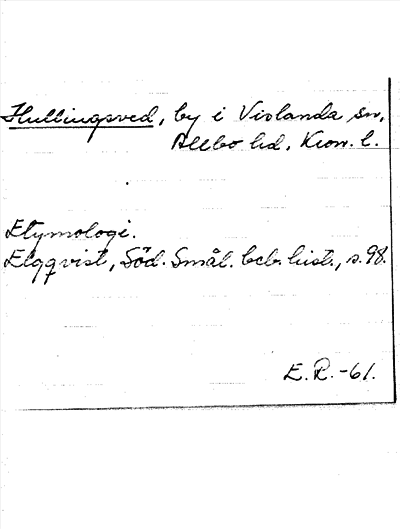 Hullingsved, by i Vislanda sn,
Allbo hd, Kron. l.
Etymologi.
Elgqvist, Söd. Smål. beb. hist., s. 98.
E. R. -61.